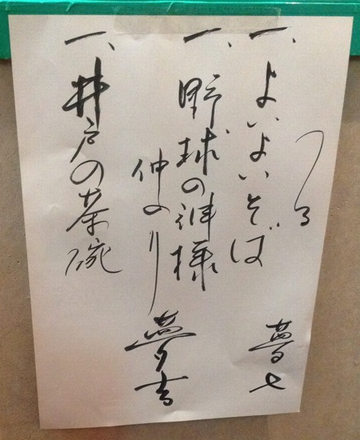 つる
一、よいよいそば
夢七
一、野球の神様
仲入り
夢吉
一、井戸の茶碗